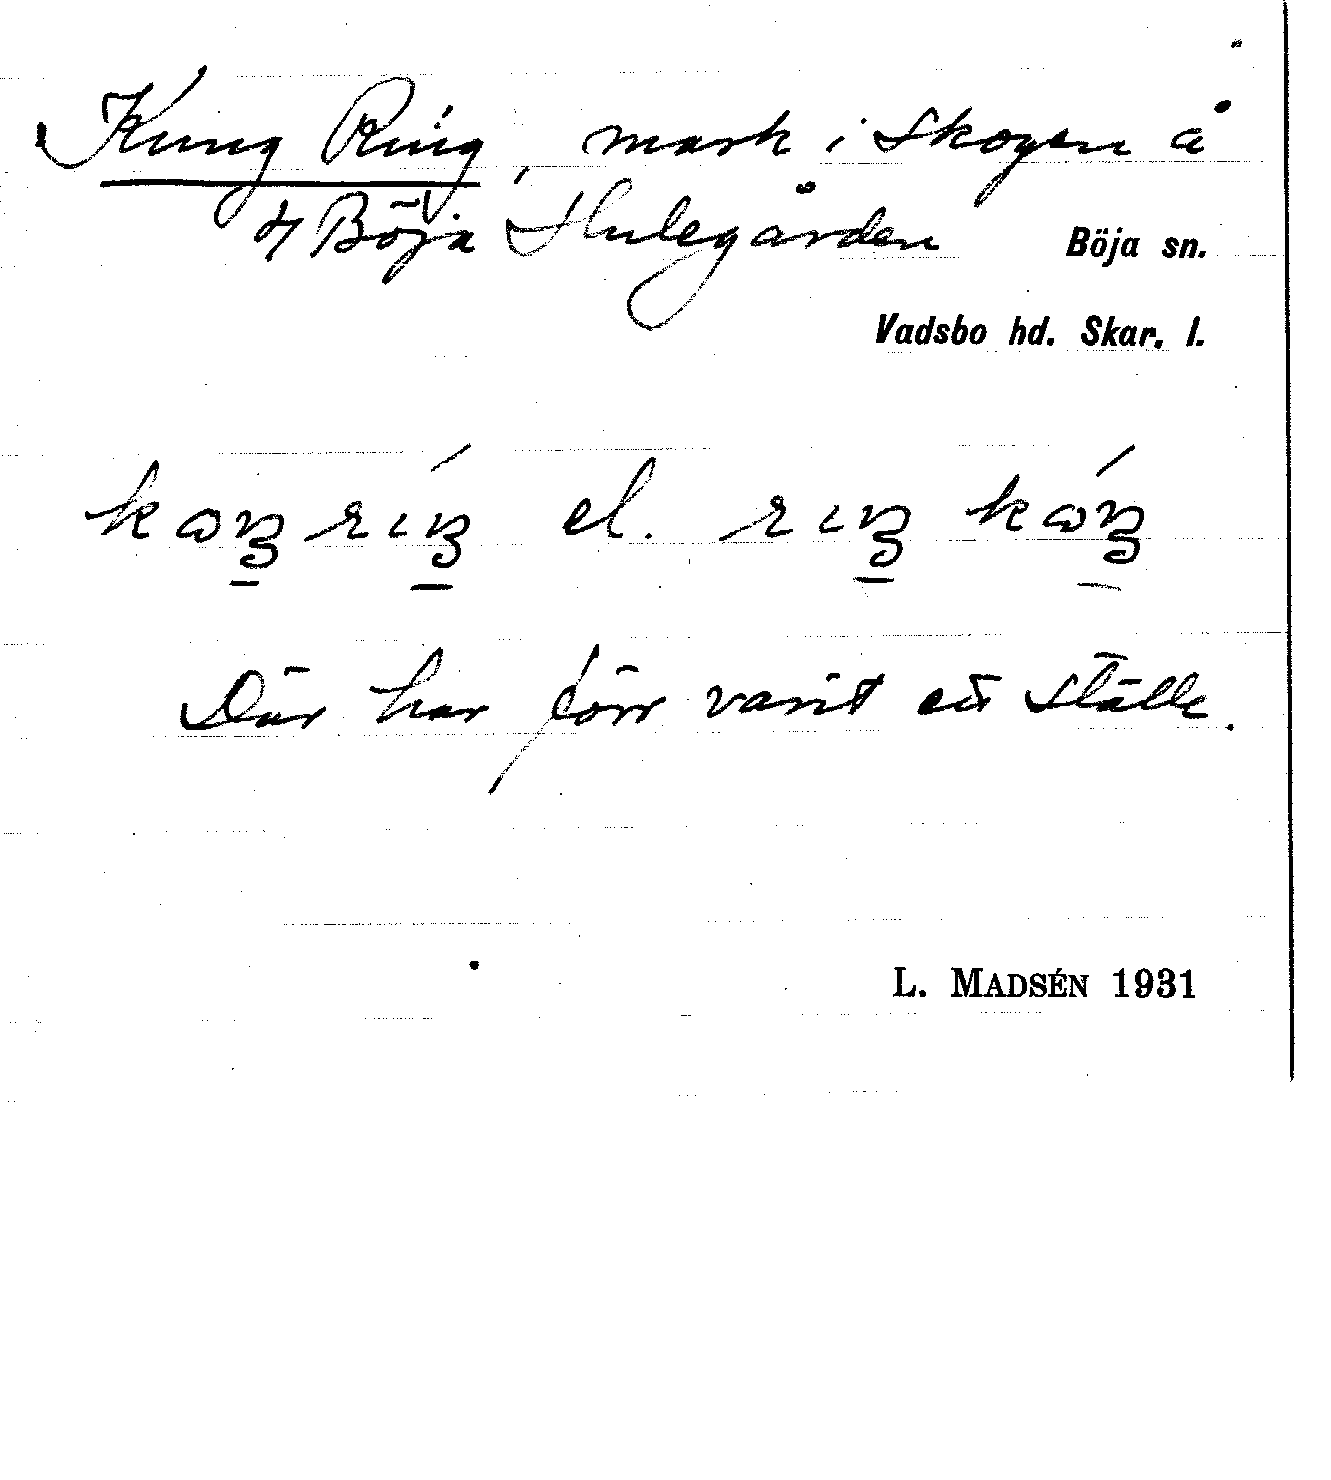 Kung Ring, mark i skogen å
4/ Böja Hulegården Böja sn.
Vadsbo hd. Skar. l.
el.
Där har förr varit ett ställe.
L. MADSÉN 1931